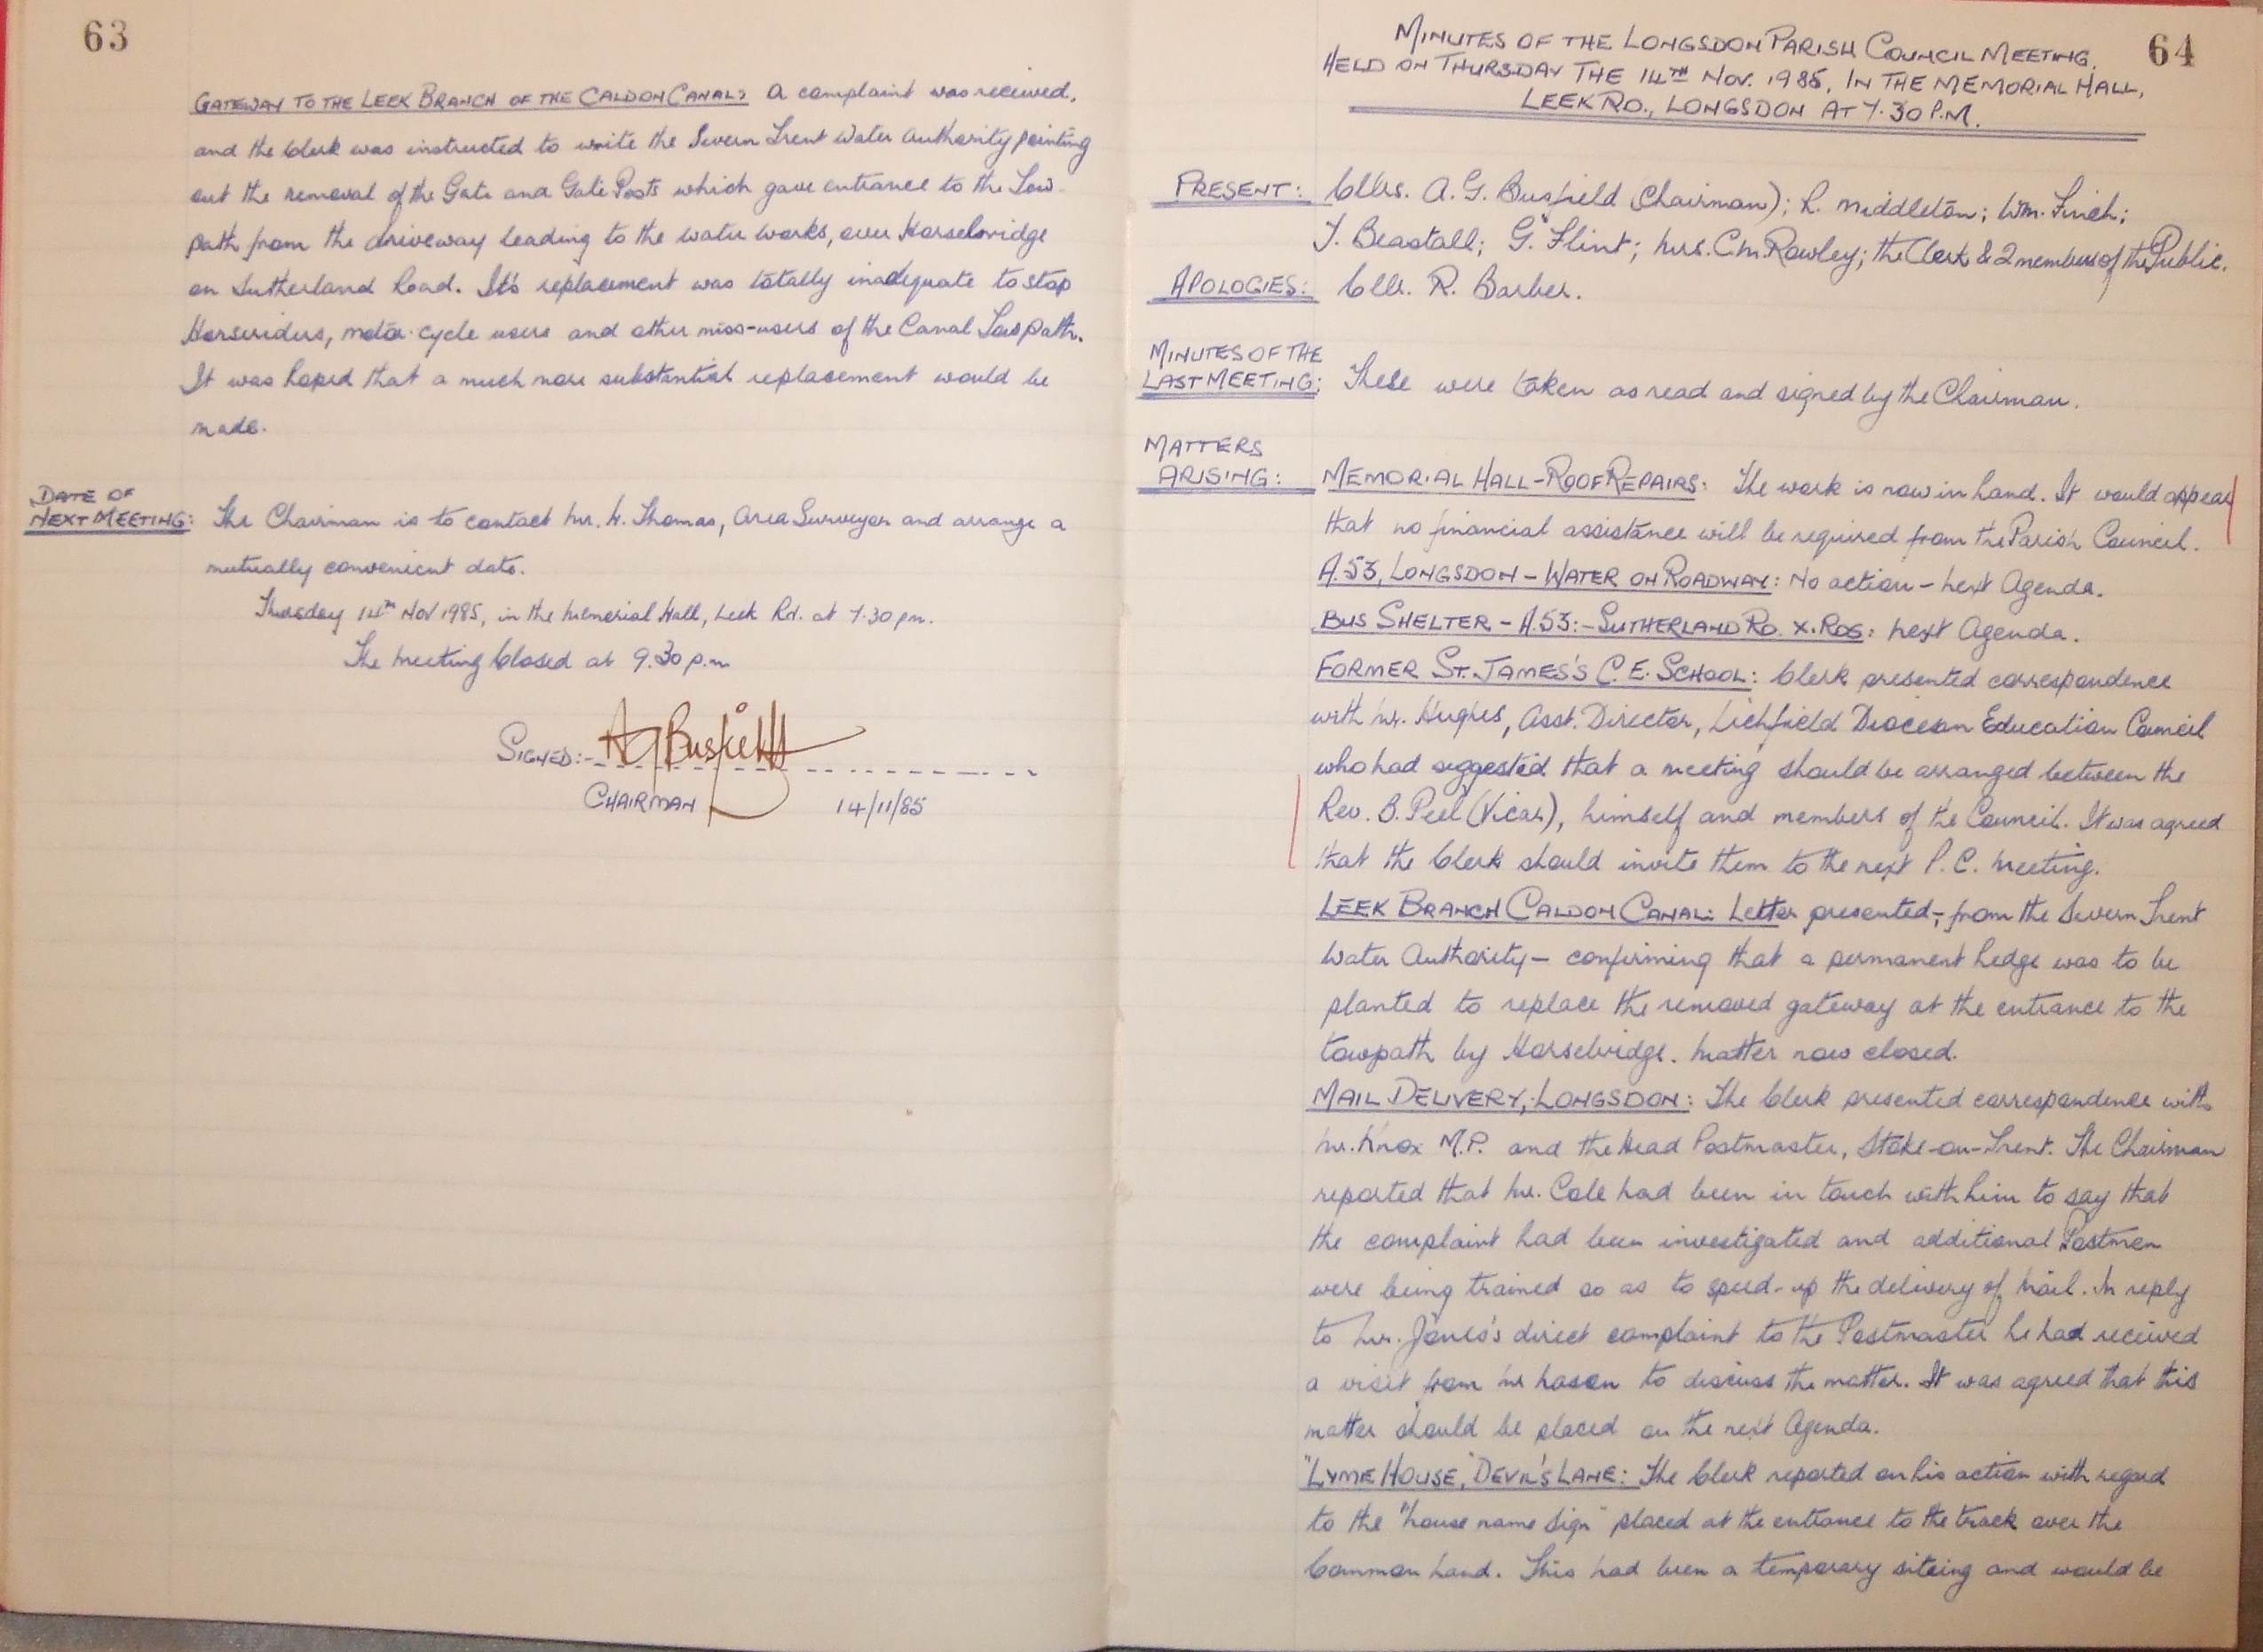 63
GATEWAY TO THE LEEK BRANCH OF THE CALDON CANAL: A complaint was received,
and the Clerk was instructed to write the Severn Trent Water Authority pointing
out the removal of the Gate and Gate Posts which gave entrance to the Tow-
path from the driveway leading to the water works, over Horsebridge
on Sutherland Road. It's replacement was totally inadequate to stop
Horseriders, motor-cycle users and other miss-users of the Canal Towpath.
It was hoped that a much more substantial replacement would be
made.
DATE OF
NEXT MEETING: The Chairman is to contact Mr. W. Thomas, Area Surveyor and arrange a
mutually convenient date.
Thursday 14th Nov 1985, in the Memorial Hall, Leek Rd. at 7.30 pm.
The Meeting Closed at 9.30 p.m
SIGNED:- A G Busfield
CHAIRMAN 14/11/85
64
MINUTES OF THE LONGSDON PARISH COUNCIL MEETING.
HELD ON THURSDAY THE 14TH NOV. 1985, IN THE MEMORIAL HALL,
LEEK RD., LONGSDON AT 7.30 P.M.
PRESENT: Cllrs. A. G. Busfield (Chairman); R. Middleton; Wm. Finch;
T. Beastall; G. Flint; Mrs. C.M. Rowley; the Clerk & 2 members of the Public.
APOLOGIES: Cllr. R. Barber.
MINUTES OF THE
LAST MEETING: These were taken as read and signed by the Chairman.
MATTERS
ARISING: MEMORIAL HALL - ROOF REPAIRS: The work is now in hand. It would appear
that no financial assistance will be required from the Parish Council.
A.53, LONGSDON - WATER ON ROADWAY: No action - next Agenda.
BUS SHELTER - A.53:- SUTHERLAND RD. X. RDS: next Agenda.
FORMER ST. JAMES'S C.E. SCHOOL: Clerk presented correspondence
with Mr. Hughes, Asst. Director, Lichfield Diocesan Education Council
who had suggested that a meeting should be arranged between the
Rev. B. Peel (Vicar), himself and members of the Council. It was agreed
that the Clerk should invite them to the next P.C. Meeting.
LEEK BRANCH CALDON CANAL: Letter presented,- from the Severn Trent
Water Authority - confirming that a permanent hedge was to be
planted to replace the removed gateway at the entrance to the
towpath by Horsebridge. Matter now closed.
MAIL DELIVERY, LONGSDON: The Clerk presented correspondence with
Mr. Knox M.P. and the Head Postmaster, Stoke-on-Trent. The Chairman
reported that Mr. Cole had been in touch with him to say that
the complaint had been investigated and additional Postmen
were being trained so as to speed-up the delivery of Mail. In reply
to Mr. Jones's direct complaint to the Postmaster he had received
a visit from Mr Mason to discuss the matter. It was agreed that this
matter should be placed on the next Agenda.
"LYME HOUSE," DEVIL'S LANE: The Clerk reported on his action with regard
to the "house name sign" placed at the entrance to the track over the
Common Land. This had been a temporary siteing and would be